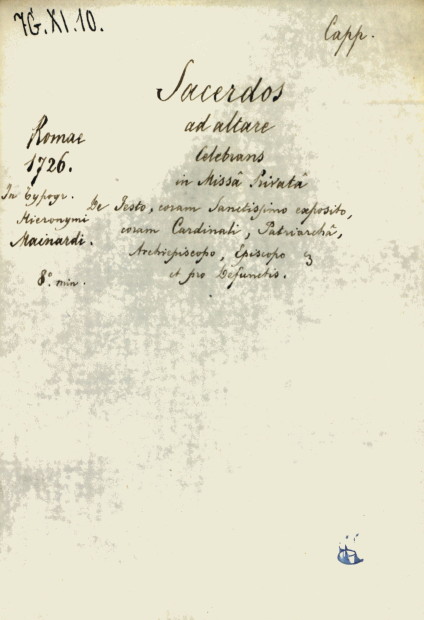 7G.XI.10.
Capp.
Sacerdos
ad altare
Celebrans
in Missâ Privatâ
De Festo, coram Sanctissimo exposito,
coram Cardinali, Patriarchâ,
Archiepiscopo, Episcopo
et pro Defunctis.
Romae
1726.
In Typogr.
Hieronymi
Mainardi.
8.° min.